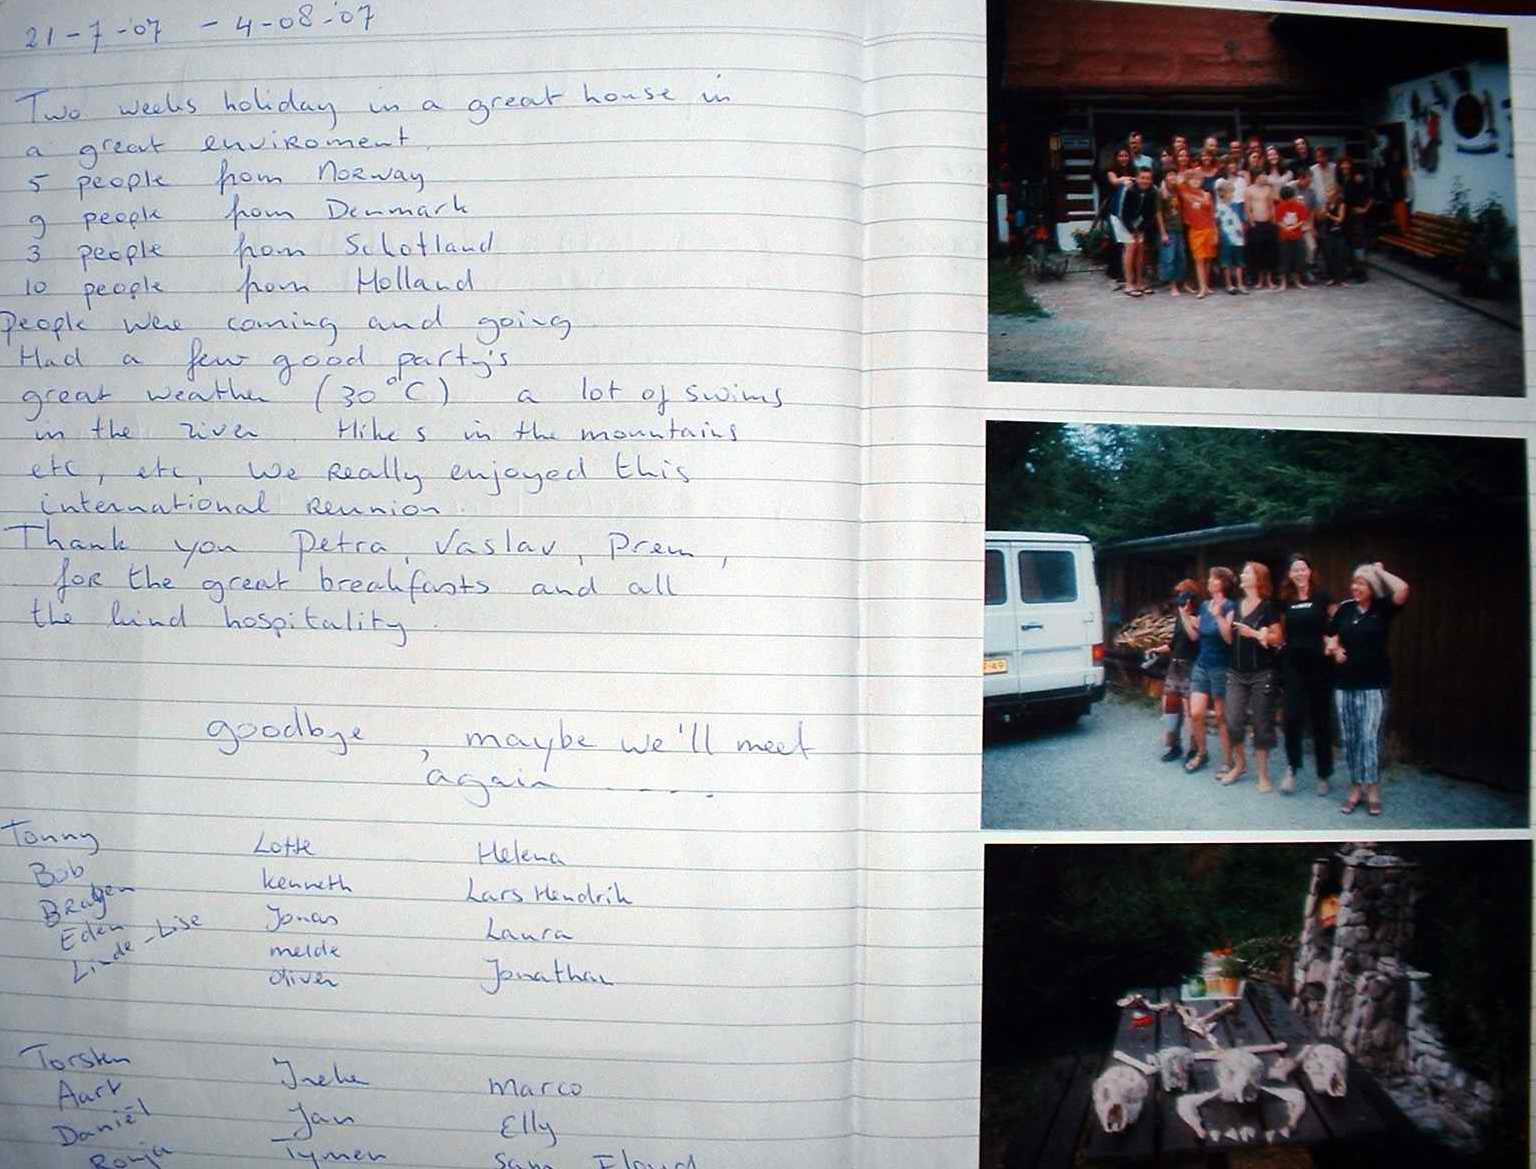 21-7-'07 - 4-08-'07
Two weeks holiday in a great house in
a great enviroment.
5 people from Norway
9 people from Denmark
3 people from Schotland
10 people from Holland
People were coming and going
Had a few good party's
great weather (30°C) a lot of swims
in the river. Hikes in the mountains
etc, etc, We Really enjoyed this
international Reunion.
Thank you Petra, Vaslav, Prem,
for the great breakfasts and all
the kind hospitality.
goodbye, maybe we'll meet
again .....
Tonny Lotte Helena
Bob Kenneth Lars Hendrik
Jonas Laura
Eden melde
Linde-Lise oliver Jonathan
Torsten Ineke Marco
Aart Jan Elly
Daniël Tymen Sam Floyd
Ronja